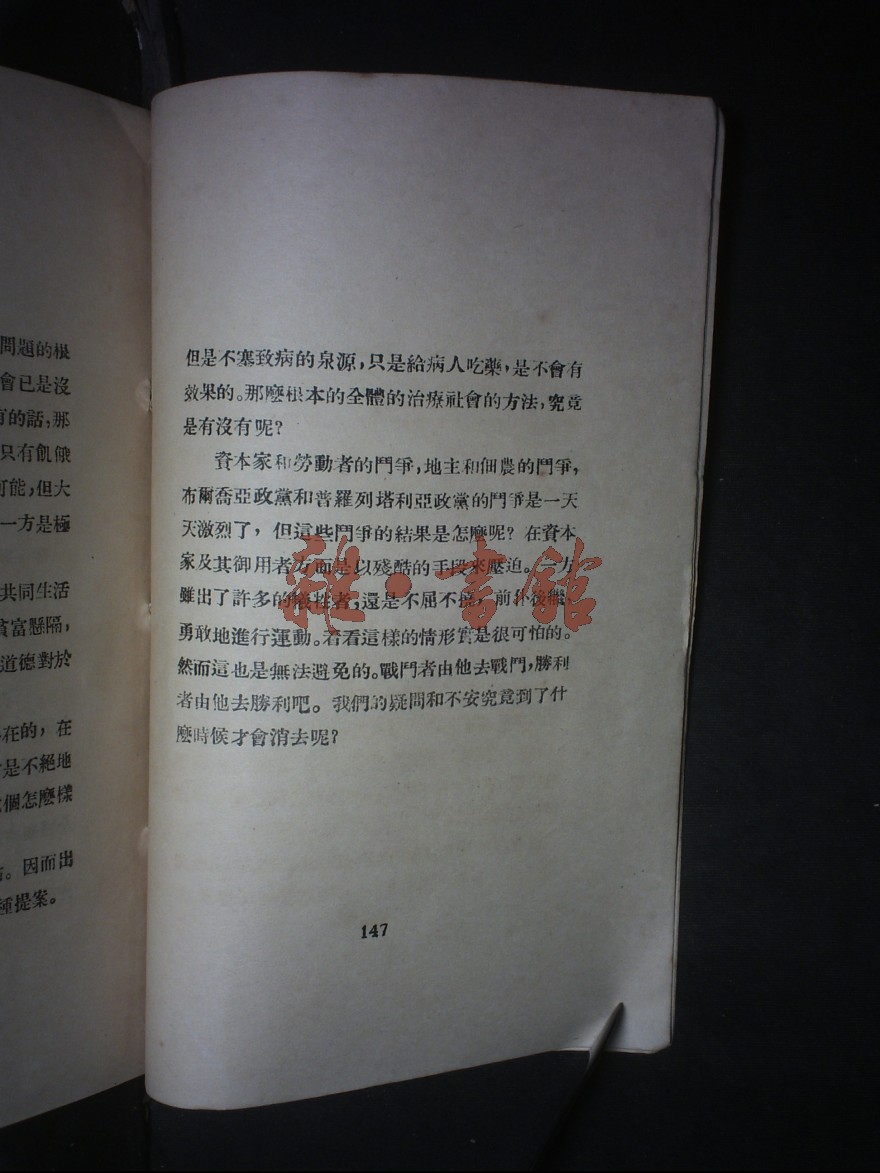 問題的根
會已是沒
有的話,那
只有飢餓
可能,但大
一方是極
共同生活
貧富懸隔,
道德對於
存在的，在
是不絕地
個怎麼樣
。因而出
種提案。
但是不塞致病的泉源,只是給病人吃藥,是不會有
效果的。那麼根本的全體的治療社會的方法,究竟
是有沒有呢?
資本家和勞動者的鬥爭,地主和佃農的鬥爭,
布爾喬亞政黨和普羅列塔利亞政黨的鬥爭是一天
天激烈了，但這些鬥爭的結果是怎麼呢? 在資本
家及其御用者方面是以殘酷的手段來壓迫。一方
雖出了許多的犧牲者,還是不屈不撓,前仆後繼,
勇敢地進行運動。看看這樣的情形實是很可怕的。
然而這也是無法避免的。戰鬥者由他去戰鬥,勝利
者由他去勝利吧。我們的疑問和不安究竟到了什
麼時候才會消去呢?
147
雜·書館